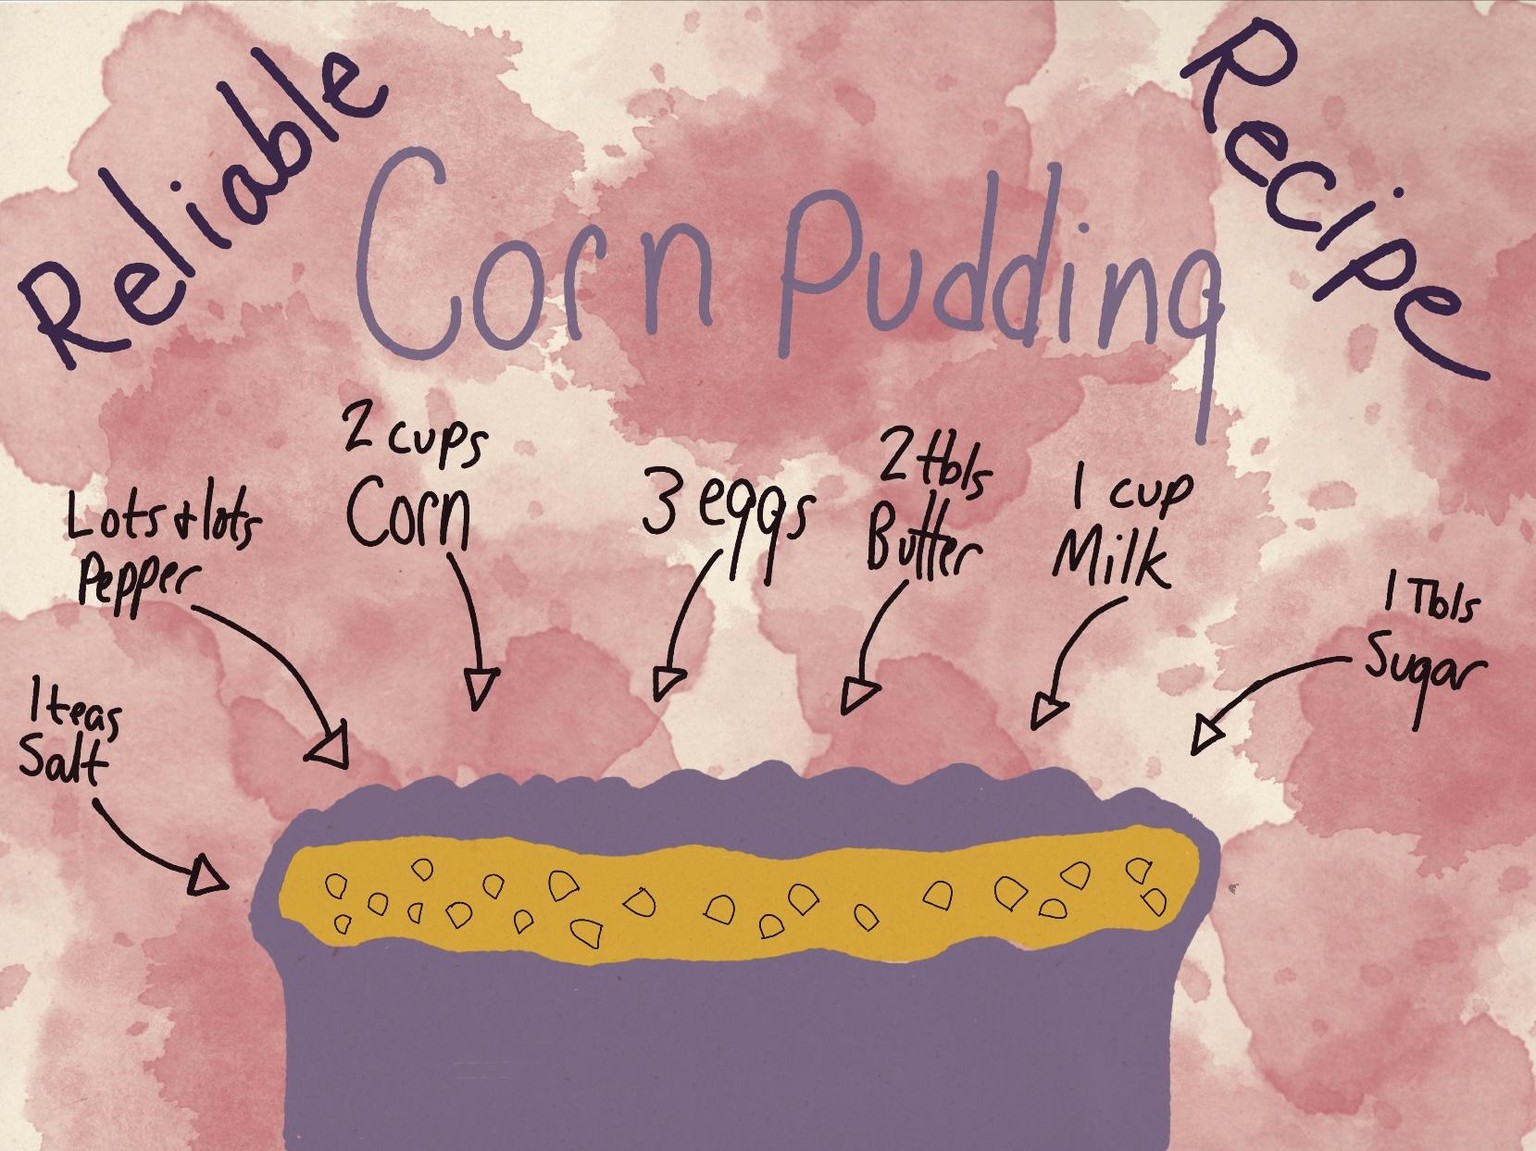 Reliable
Corn Pudding
Recipe
1 teas
Salt
Lots + lots
Pepper
2 cups
Corn
3 eggs
2 tbls
Butter
1 cup
Milk
1 Tbls
Sugar